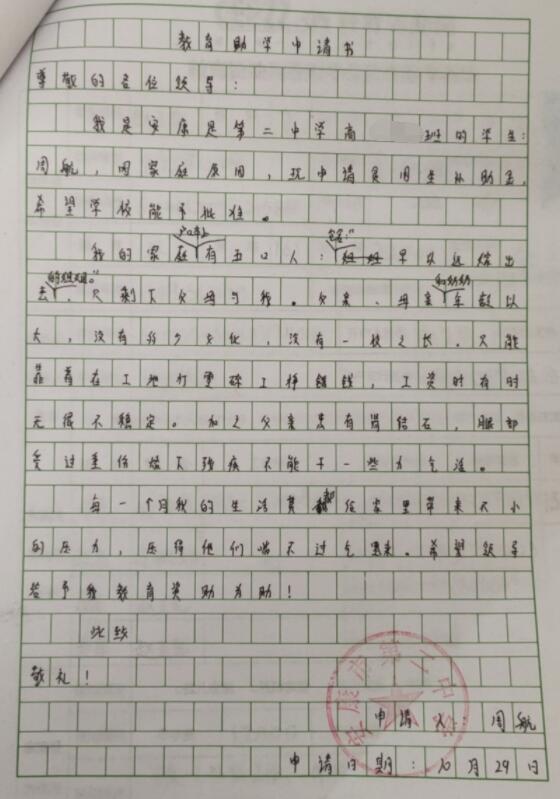 教育助学申请书
尊敬的各位领导：
我是安康是第二中学高 班的学生：
周航，因家庭原因，现申请贫困生补助金，
希望学校能予批准。
户口本上 包括:"
我的家庭有五口人： 早以远嫁出
的姐姐。" 和奶奶
去，只剩下父母与我。父亲、母亲年数以
大，没有多少文化，没有一技之长。只能
靠着在工地打零碎工挣钱，工资时有时
无很不稳定。加之父亲患有肾结石，眼部
受过重伤落下残疾不能干一些力气活。
每一个月我的生活费都给家里带来不小
的压力，压得他们喘不过气来。希望领导
给予我教育资助为助！
此致
敬礼！
安康市第二中学
申请人 周航
申请日期：10月29日